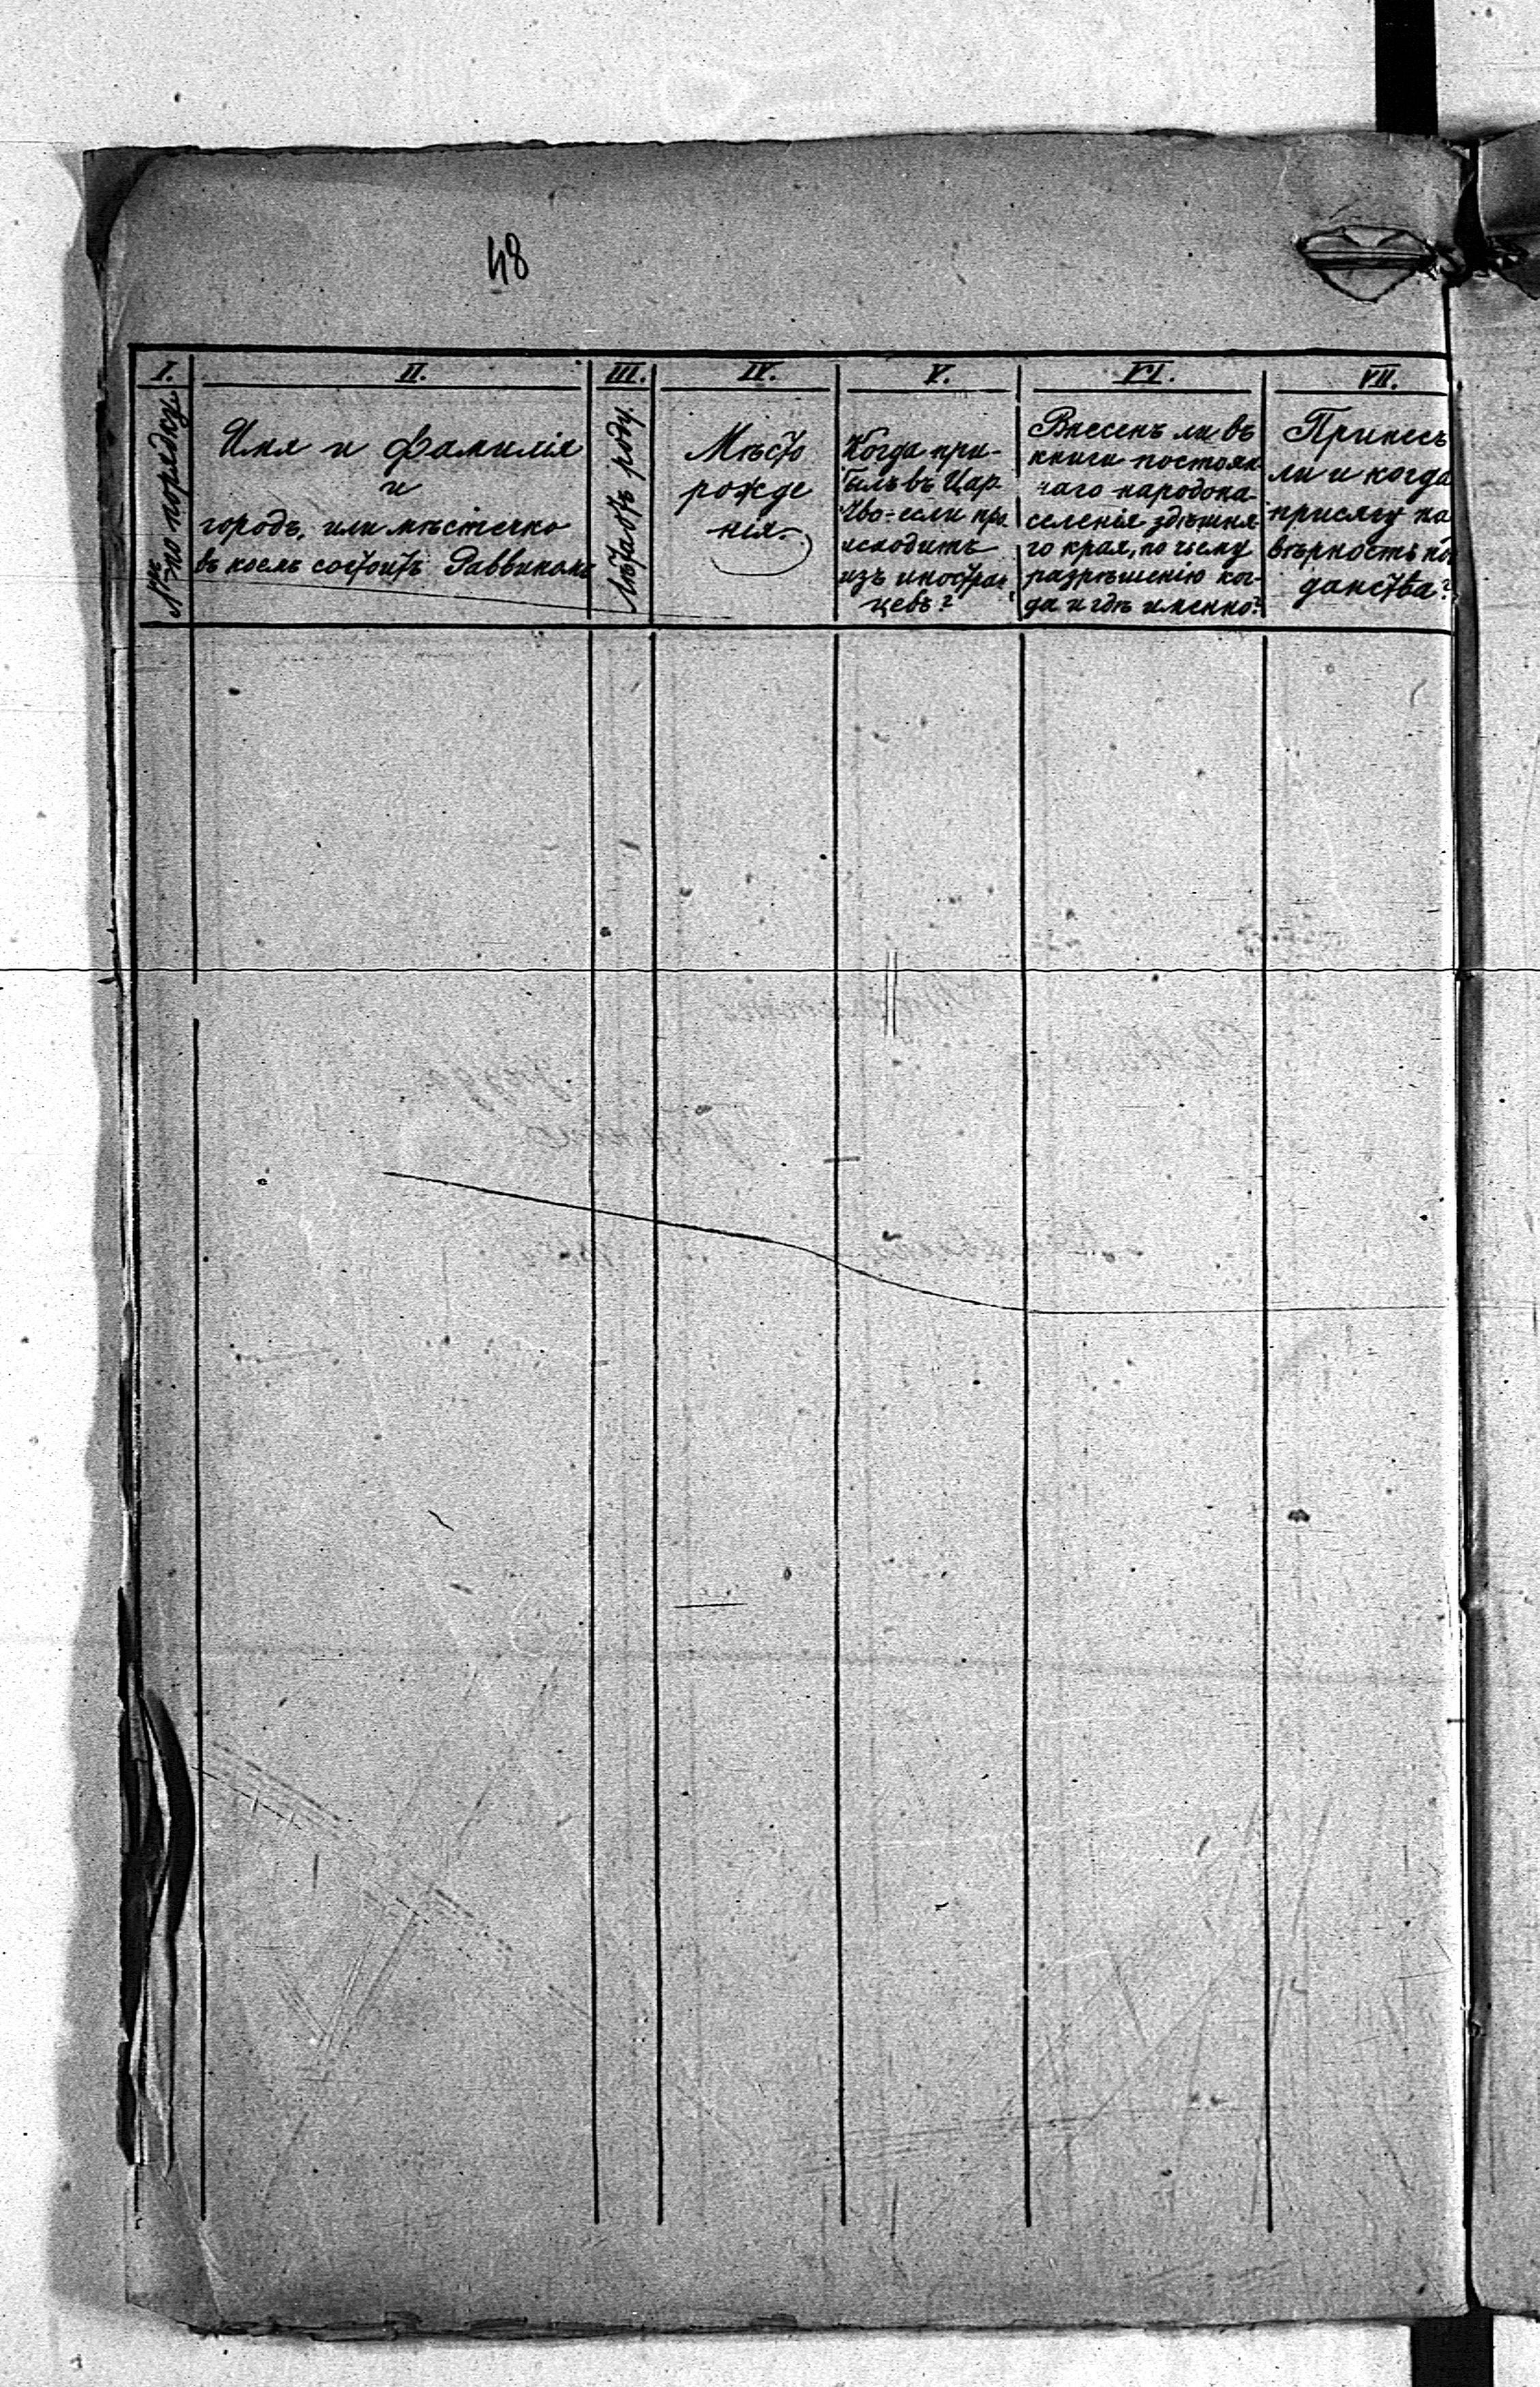 48
I.
№ по порядку.
II.
Имя и фамилія
и
городъ, или мѣстечко
въ коемъ состоитъ Раввиномъ
III.
Лѣтъ отъ роду.
IV.
Мѣсто
рожде
нія.
V.
Когда при-
былъ въ Цар-
тво-если про
исходитъ
изъ иностран
цевъ?
VI.
Внесенъ ли въ
книги постоян
наго народона-
селенія здѣшня-
го края, по чьему
разрѣшенію ког-
да и гдѣ именно?
VII.
Принесъ
ли и когда
присягу на
вѣрность по
данства?